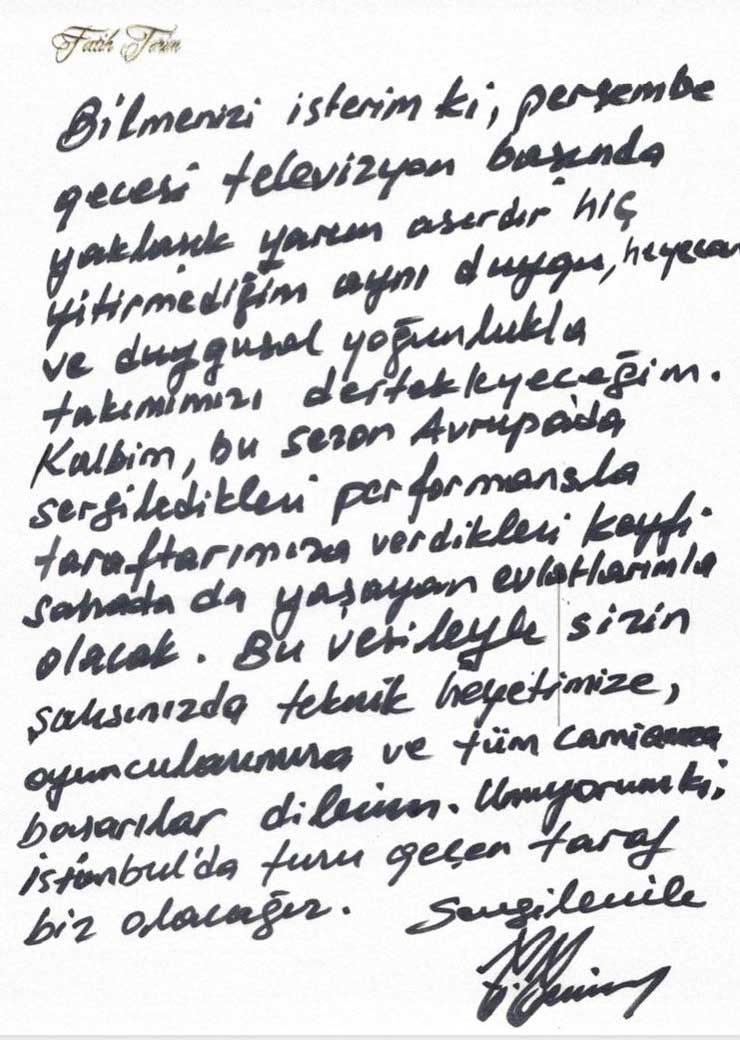 Fatih Terim
Bilmenizi isterim ki, perşembe
gecesi televizyon başında
yaklaşık yarım asırdır hiç
yitirmediğim aynı duygu, heyecan
ve duygusal yoğunlukla
takımımızı destekleyeceğim.
Kalbim, bu sezon Avrupa'da
sergiledikleri performansla
taraftarımıza verdikleri keyfi
sahada da yaşayan evlatlarımla
olacak. Bu vesileyle sizin
şahsınızda teknik heyetimize,
oyuncularımıza ve tüm camiamıza
başarılar dilerim. Umuyorum ki,
İstanbul'da turu geçen taraf
biz olacağız. Sevgilerimle